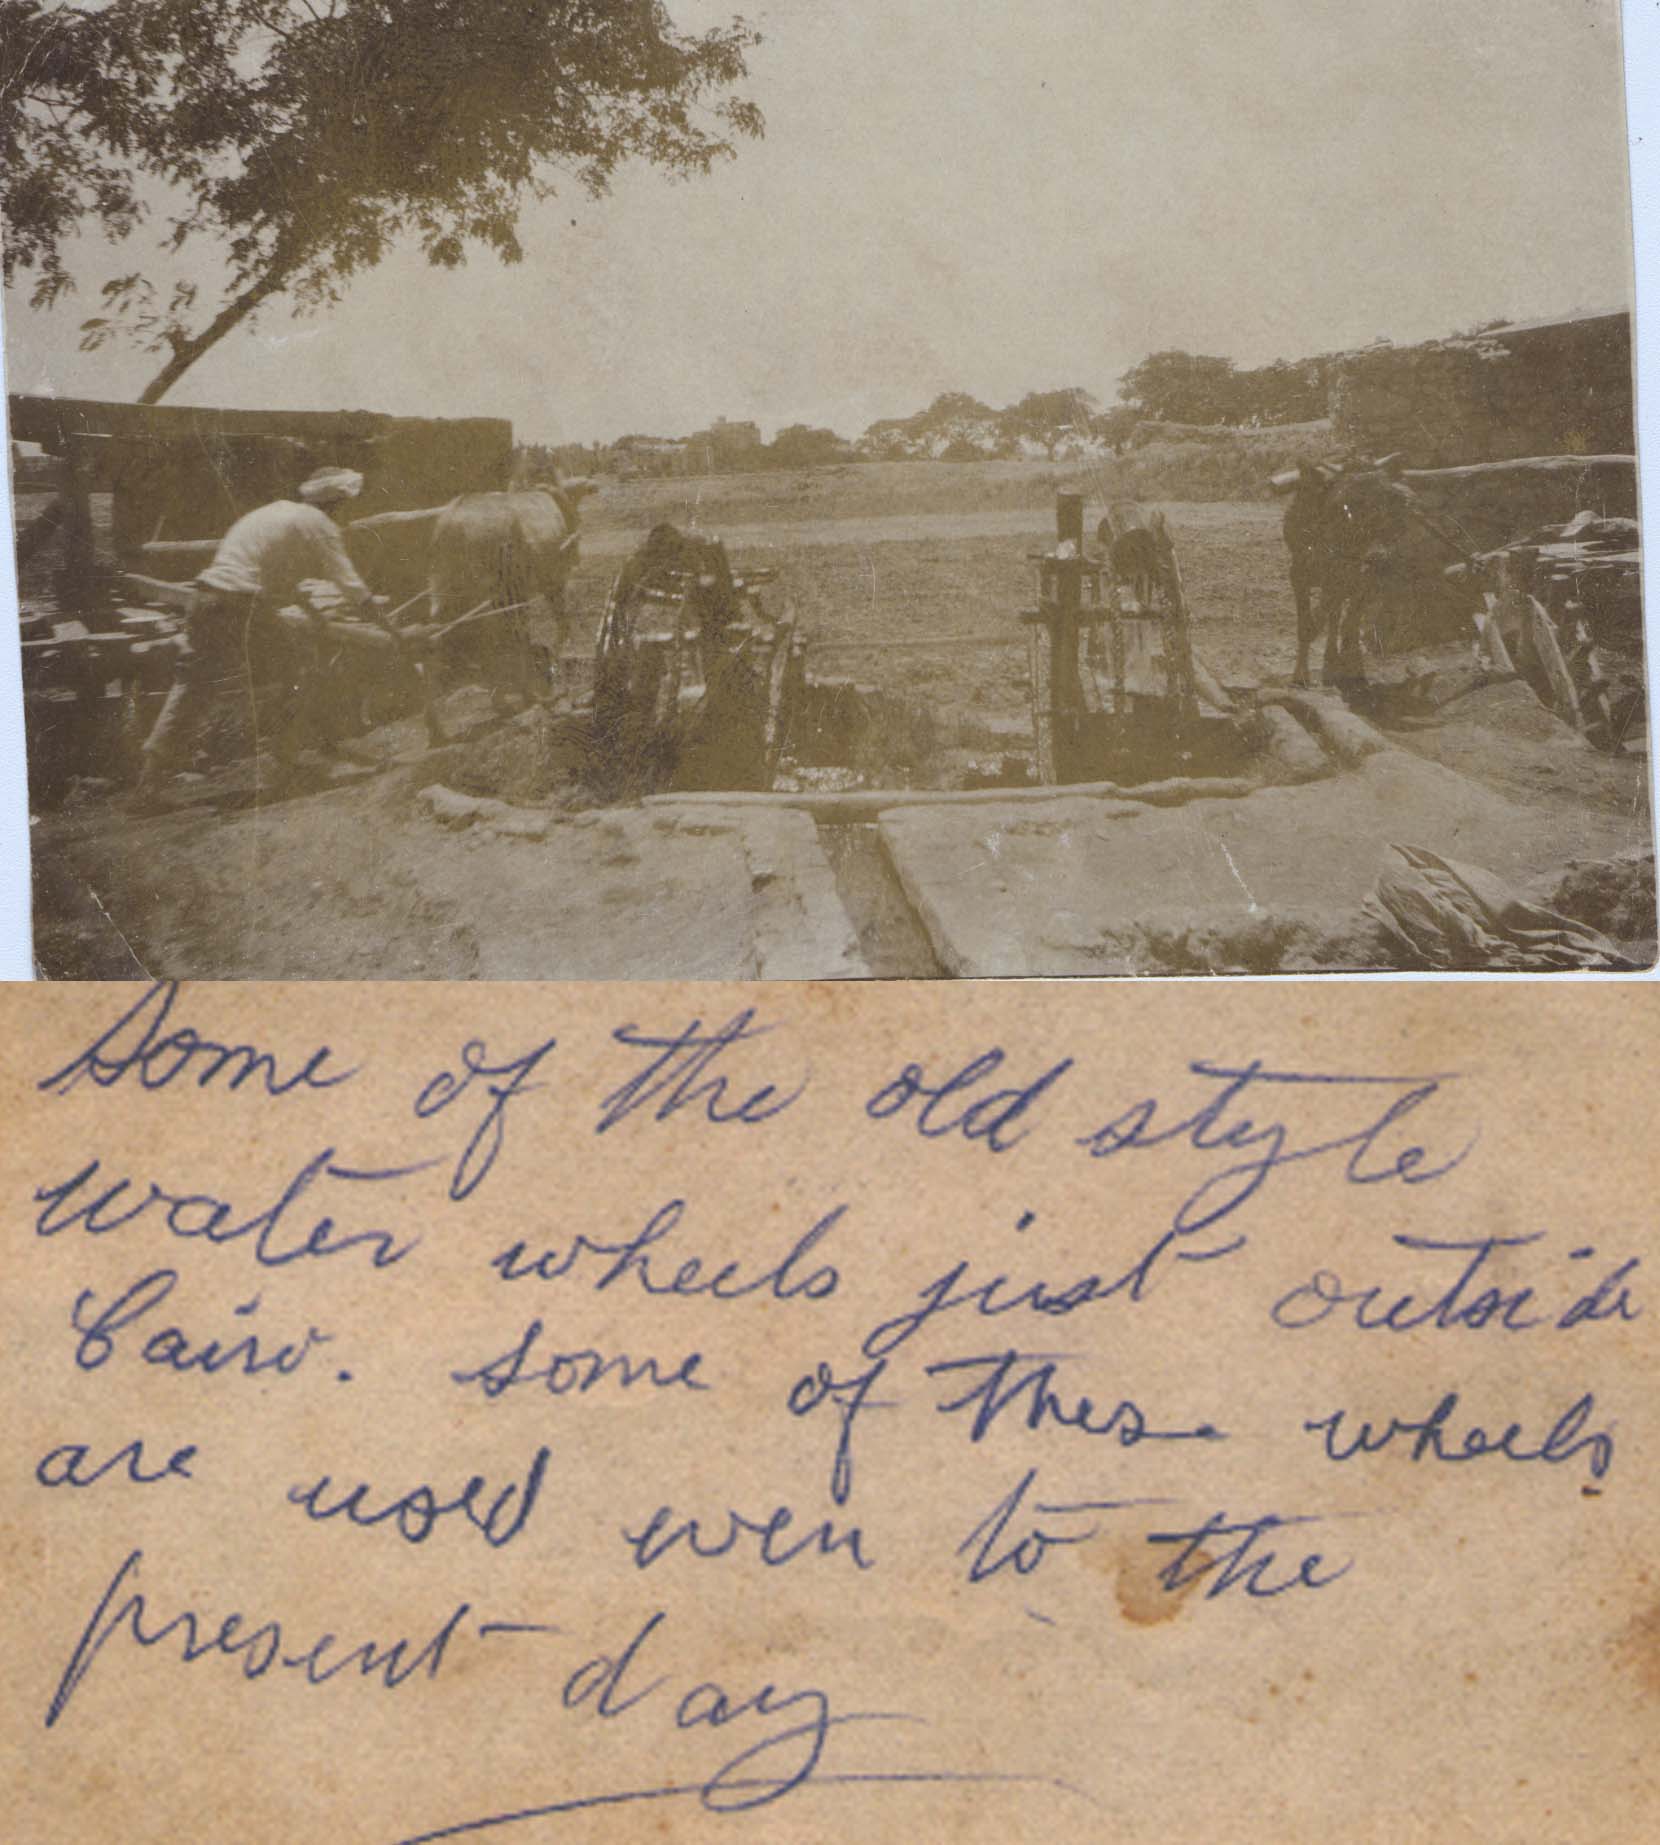 Some of the old style
water wheels just outside
Cairo. Some of these wheels
are used even to the
present day